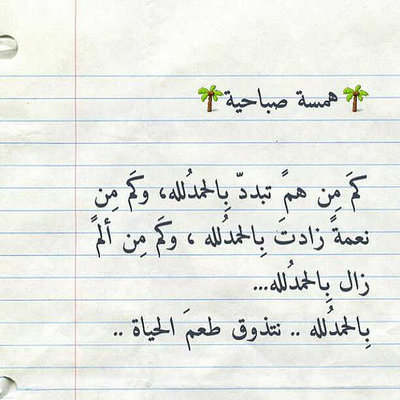 🌴همسة صباحية🌴
كَم مِن همً تبددّ بِالحمدُلله، وكَم مِن
نعمةً زادتَ بِالحمدُلله ، وكَم مِن ألمً
زال بِالحمدُلله...
بِالحمدُلله .. نتذوق طعمَ الحياة ..